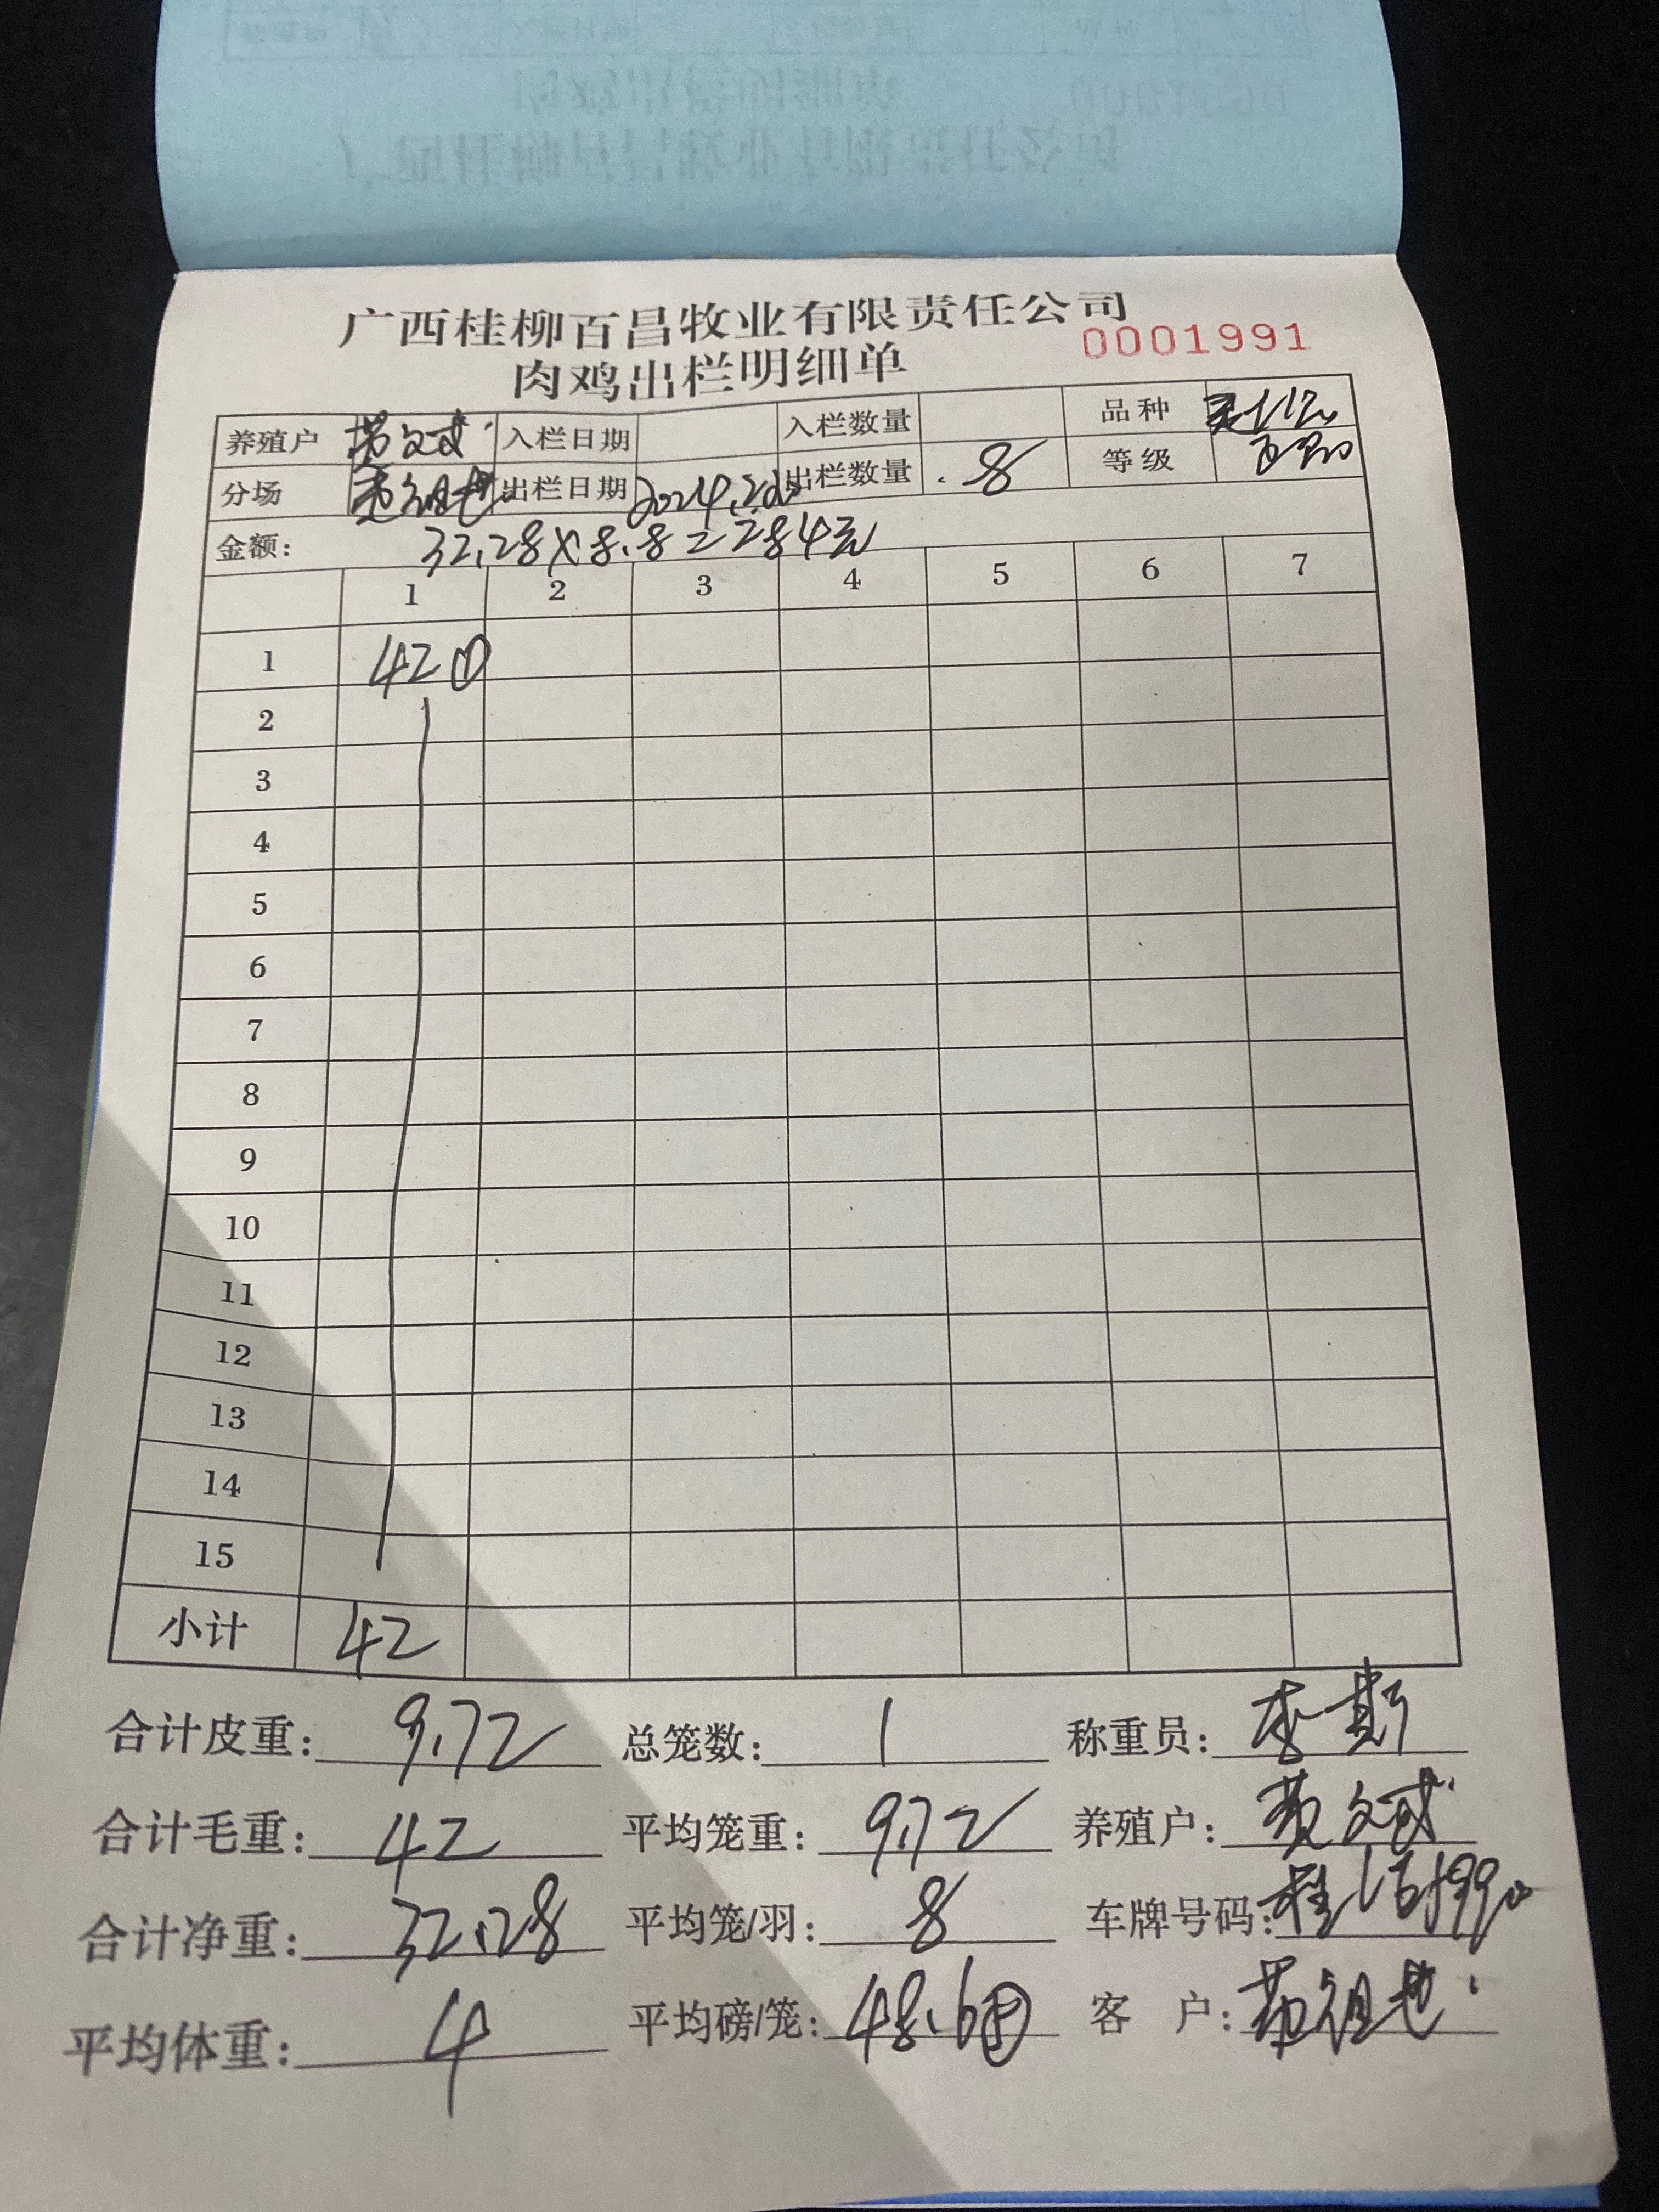 广西桂柳百昌牧业有限责任公司
0001991
肉鸡出栏明细单
养殖户 入栏日期 入栏数量 品种
分场 出栏日期 2024.2. 出栏数量 8 等级
金额: 32.28×8.8=284元
1 2 3 4 5 6 7
1 42 ①
2
3
4
5
6
7
8
9
10
11
12
13
14
15
小计 42
合计皮重: 9.72 总笼数: 1 称重员:
合计毛重: 42 平均笼重: 9.72 养殖户:
合计净重: 32.28 平均笼/羽: 8 车牌号码:
平均体重: 4 平均磅/笼: 48.6 客 户: